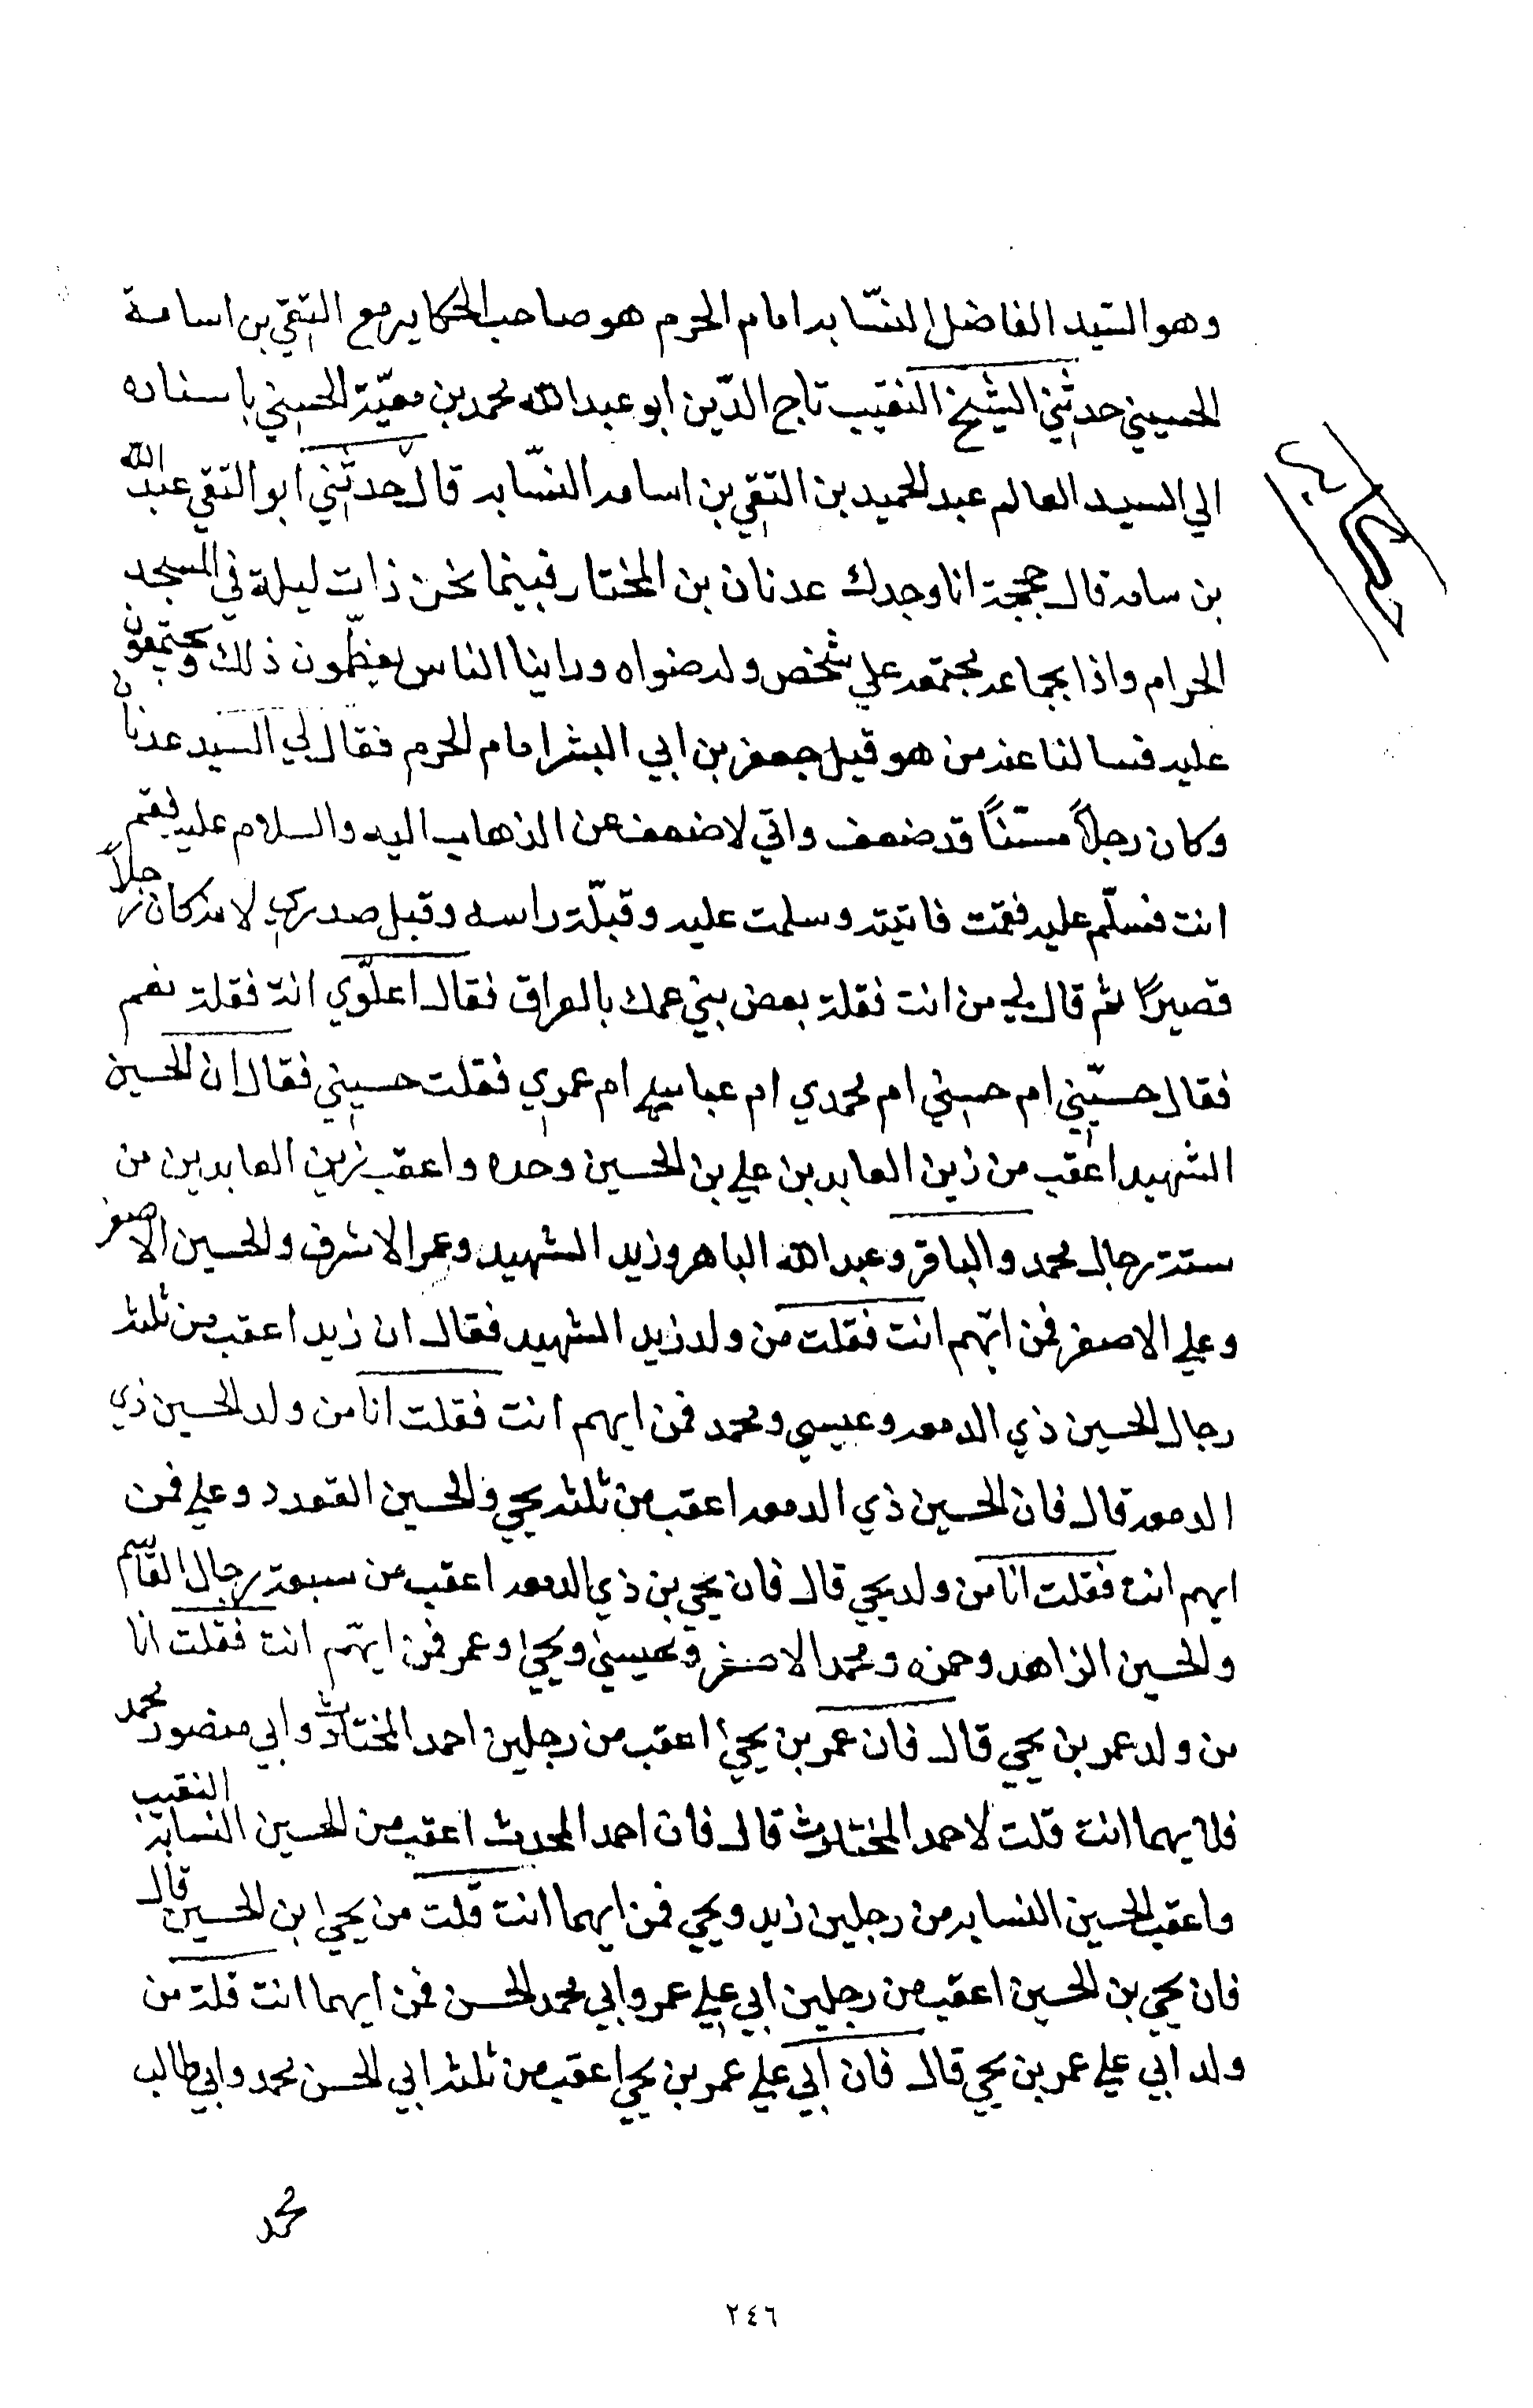 وهو السّيد الفاضل النسّابه امام الحرم هو صاحب الحكايه مع التقي بن اسامة
الحسيني حدثني الشيخ النقيب تاج الدّين ابو عبد الله محمد بن معيّة الحسني باسناده
الي السيد العالم عبد الحميد بن التقي بن اسامه النسّابه قال حدثني ابو التقي عبد الله
بن سامه قال حججة انا وجدك عدنان بن المختار فبينما نحن ذات ليلة في المسجد
الحرام واذا بجماعه مجتمعه علي شخص وراينا الناس يعظّمون ذلك ويجتمعون
عليه فسالنا عنه من هو قيل جعفر بن ابي البشر امام الحرم فقال لي السيد عدنان
وكان رجلاً مسّناً قد ضعف واني لاضعف عن الذهاب اليه والسلام عليه فقم
انت فسلّم عليه فقمت فاتيته وسلمت عليه وقبلّة راسه وقبل صدري لانه كان رجلاً
قصيرًا ثم قال لي من انت فقلة بعض بني عمك بالعراق فقال اعلوّي انت فقلة نعم
فقال حسيّني ام حسني ام محمدي ام عباسي ام عمري فقلت حسيني فقال ان الحسين
الشهيد اعقب من زين العابدين علي بن الحسين وحده واعقب زين العابدين من
ستة رجال محمد والباقر وعبد الله الباهر وزيد الشهيد وعمر الاشرف والحسين الاصغر
وعلي الاصغر فمن ايّهم انت فقلت من ولد زيد الشهيد فقال ان زيد اعقب من ثلثه
رجال الحسين ذي الدمعه وعيسي ومحمد فمن ايهم انت فقلت انا من ولد الحسين ذي
الدمعه قال فان الحسين ذي الدمعه اعقب من ثلثه يحيي والحسين القعدد وعلي فمن
ايهم انت فقلت انا من ولد يحيي قال فان يحيي بن ذي الدمعه اعقب من سبعة رجال القاسم
والحسين الزاهد وحمزه ومحمد الاصغر وعيسي ويحيي وعمر فمن ايهّم انت فقلت انا
من ولد عمر بن يحيي قال فان عمر بن يحيي اعقب من رجلين احمد وابي منصور محمد
فلايهما انت قلت لاحمد قال فان احمد المحدث اعقب من الحسين النسابة النقيب
واعقب الحسين النسابه من رجلين زيد ويحيي فمن ايهما انت قلت من يحيي ابن الحسين قال
فان يحيي بن الحسين اعقب من رجلين ابي علي عمر وابي محمد الحسن فمن ايهما انت قلة من
ولد ابي علي عمر بن يحيي قال فان ابي علي عمر بن يحيي اعقب من ثلثه ابي الحسن محمد وابي طالب
محمد
٢٤٦